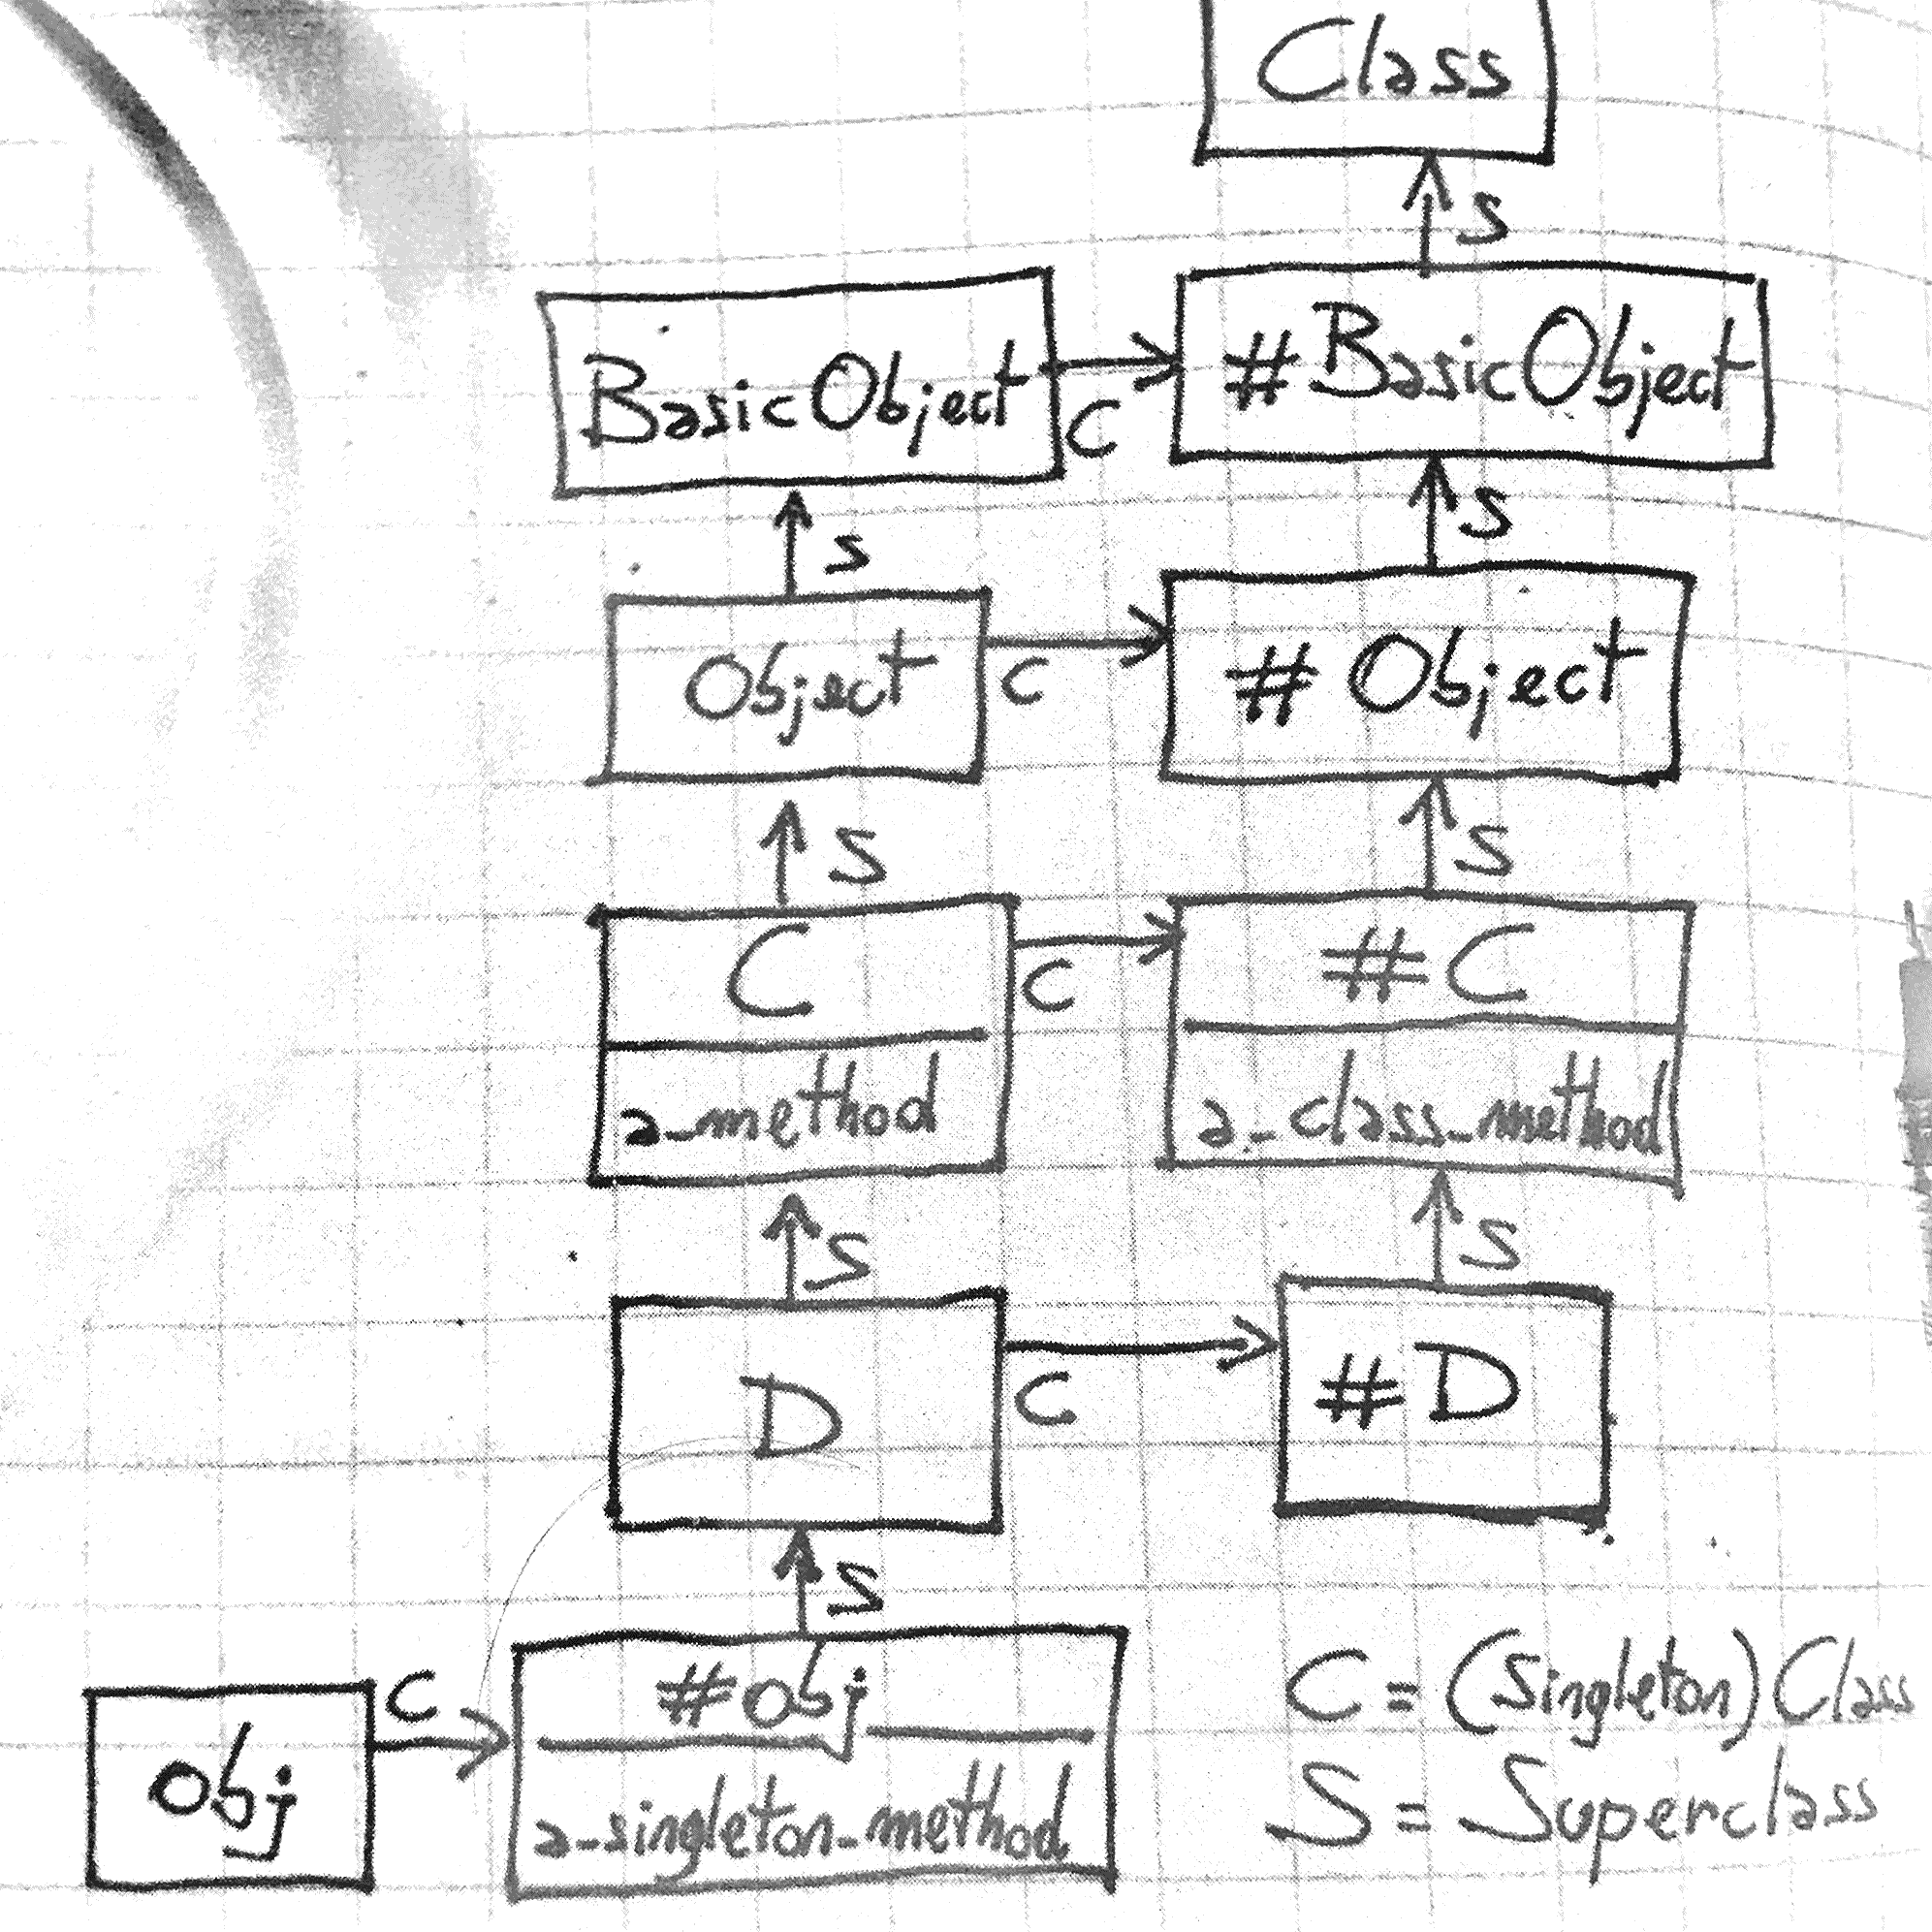 Class
S
BasicObject
C
#BasicObject
S
S
Object
C
#Object
S
S
C
C
#C
a_method
a_class_method
S
S
D
C
#D
S
obj
C
#obj
a_singleton_method
C = (Singleton) Class
S = Superclass